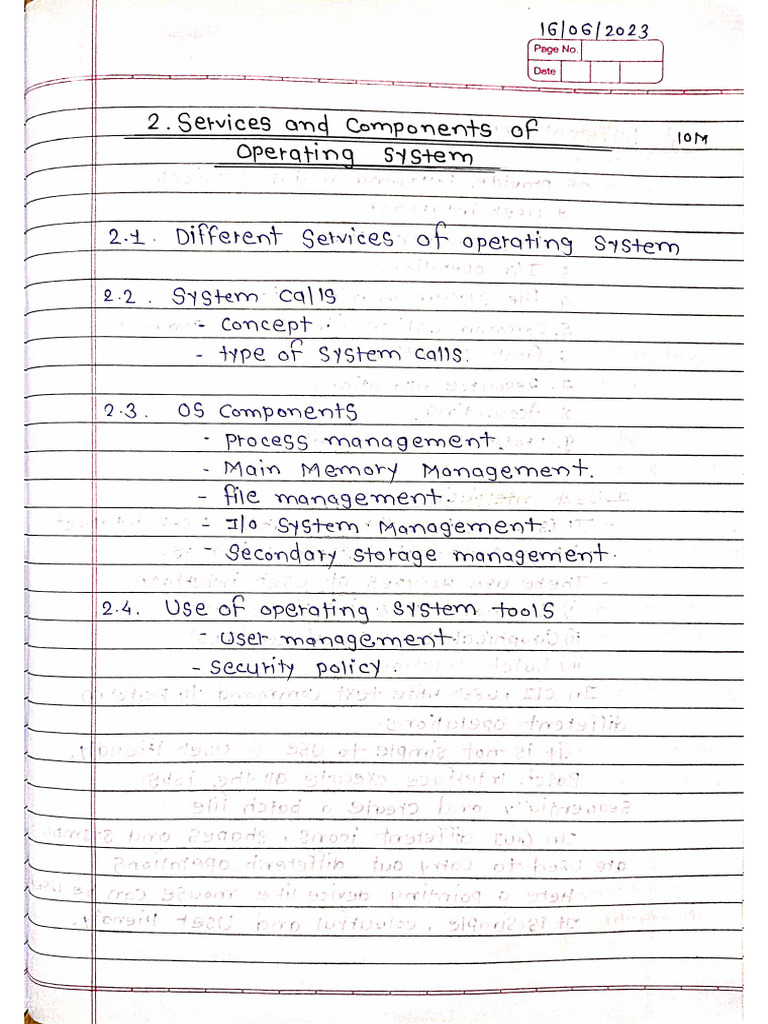 16/06/2023
Page No.
Date
2. Services and Components of 10M
Operating System
2.1. Different Services of operating System
2.2. System Calls
- Concept.
- type of System calls.
2.3. OS Components
- Process management.
- Main Memory Management.
- file management.
- I/O System Management.
- Secondary Storage management.
2.4. Use of operating System tools
- User management
- Security policy.